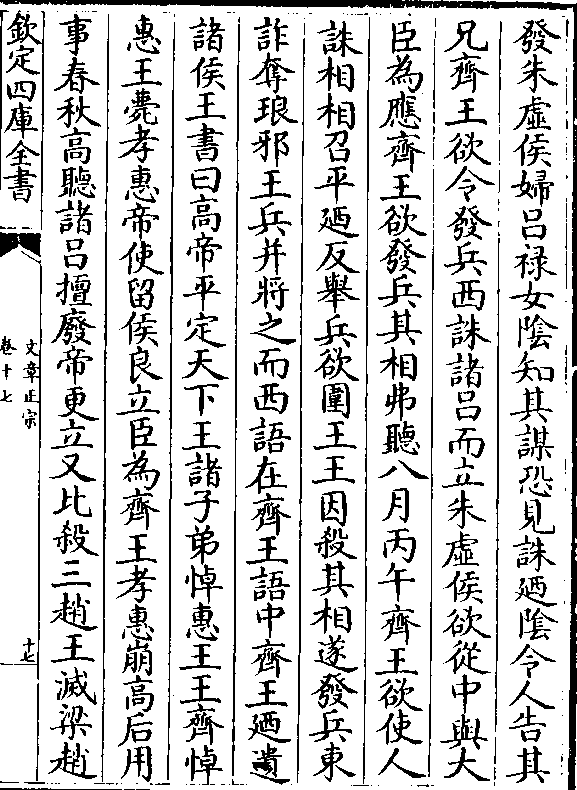 發朱虛侯婦呂祿女陰知其謀恐見誅廼陰令人告其
兄齊王欲令發兵西誅諸呂而立朱虛侯欲從中與大
臣為應齊王欲發兵其相弗聽八月丙午齊王欲使人
誅相相召平廼反舉兵欲圍王王因殺其相遂發兵東
詐奪琅邪王兵并將之而西語在齊王語中齊王廼遺
諸侯王書曰高帝平定天下王諸子弟悼惠王王齊悼
惠王薨孝惠帝使留侯良立臣為齊王孝惠崩高后用
事春秋高聽諸呂擅廢帝更立又比殺三趙王滅梁趙
欽定四庫全書
文章正宗
卷十七
十七